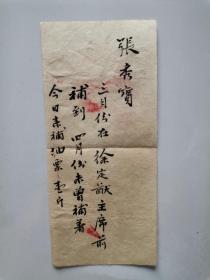 張秀寶
三月份在徐定猷主席前
補到四月份未曾補着
今日未補油票壹斤